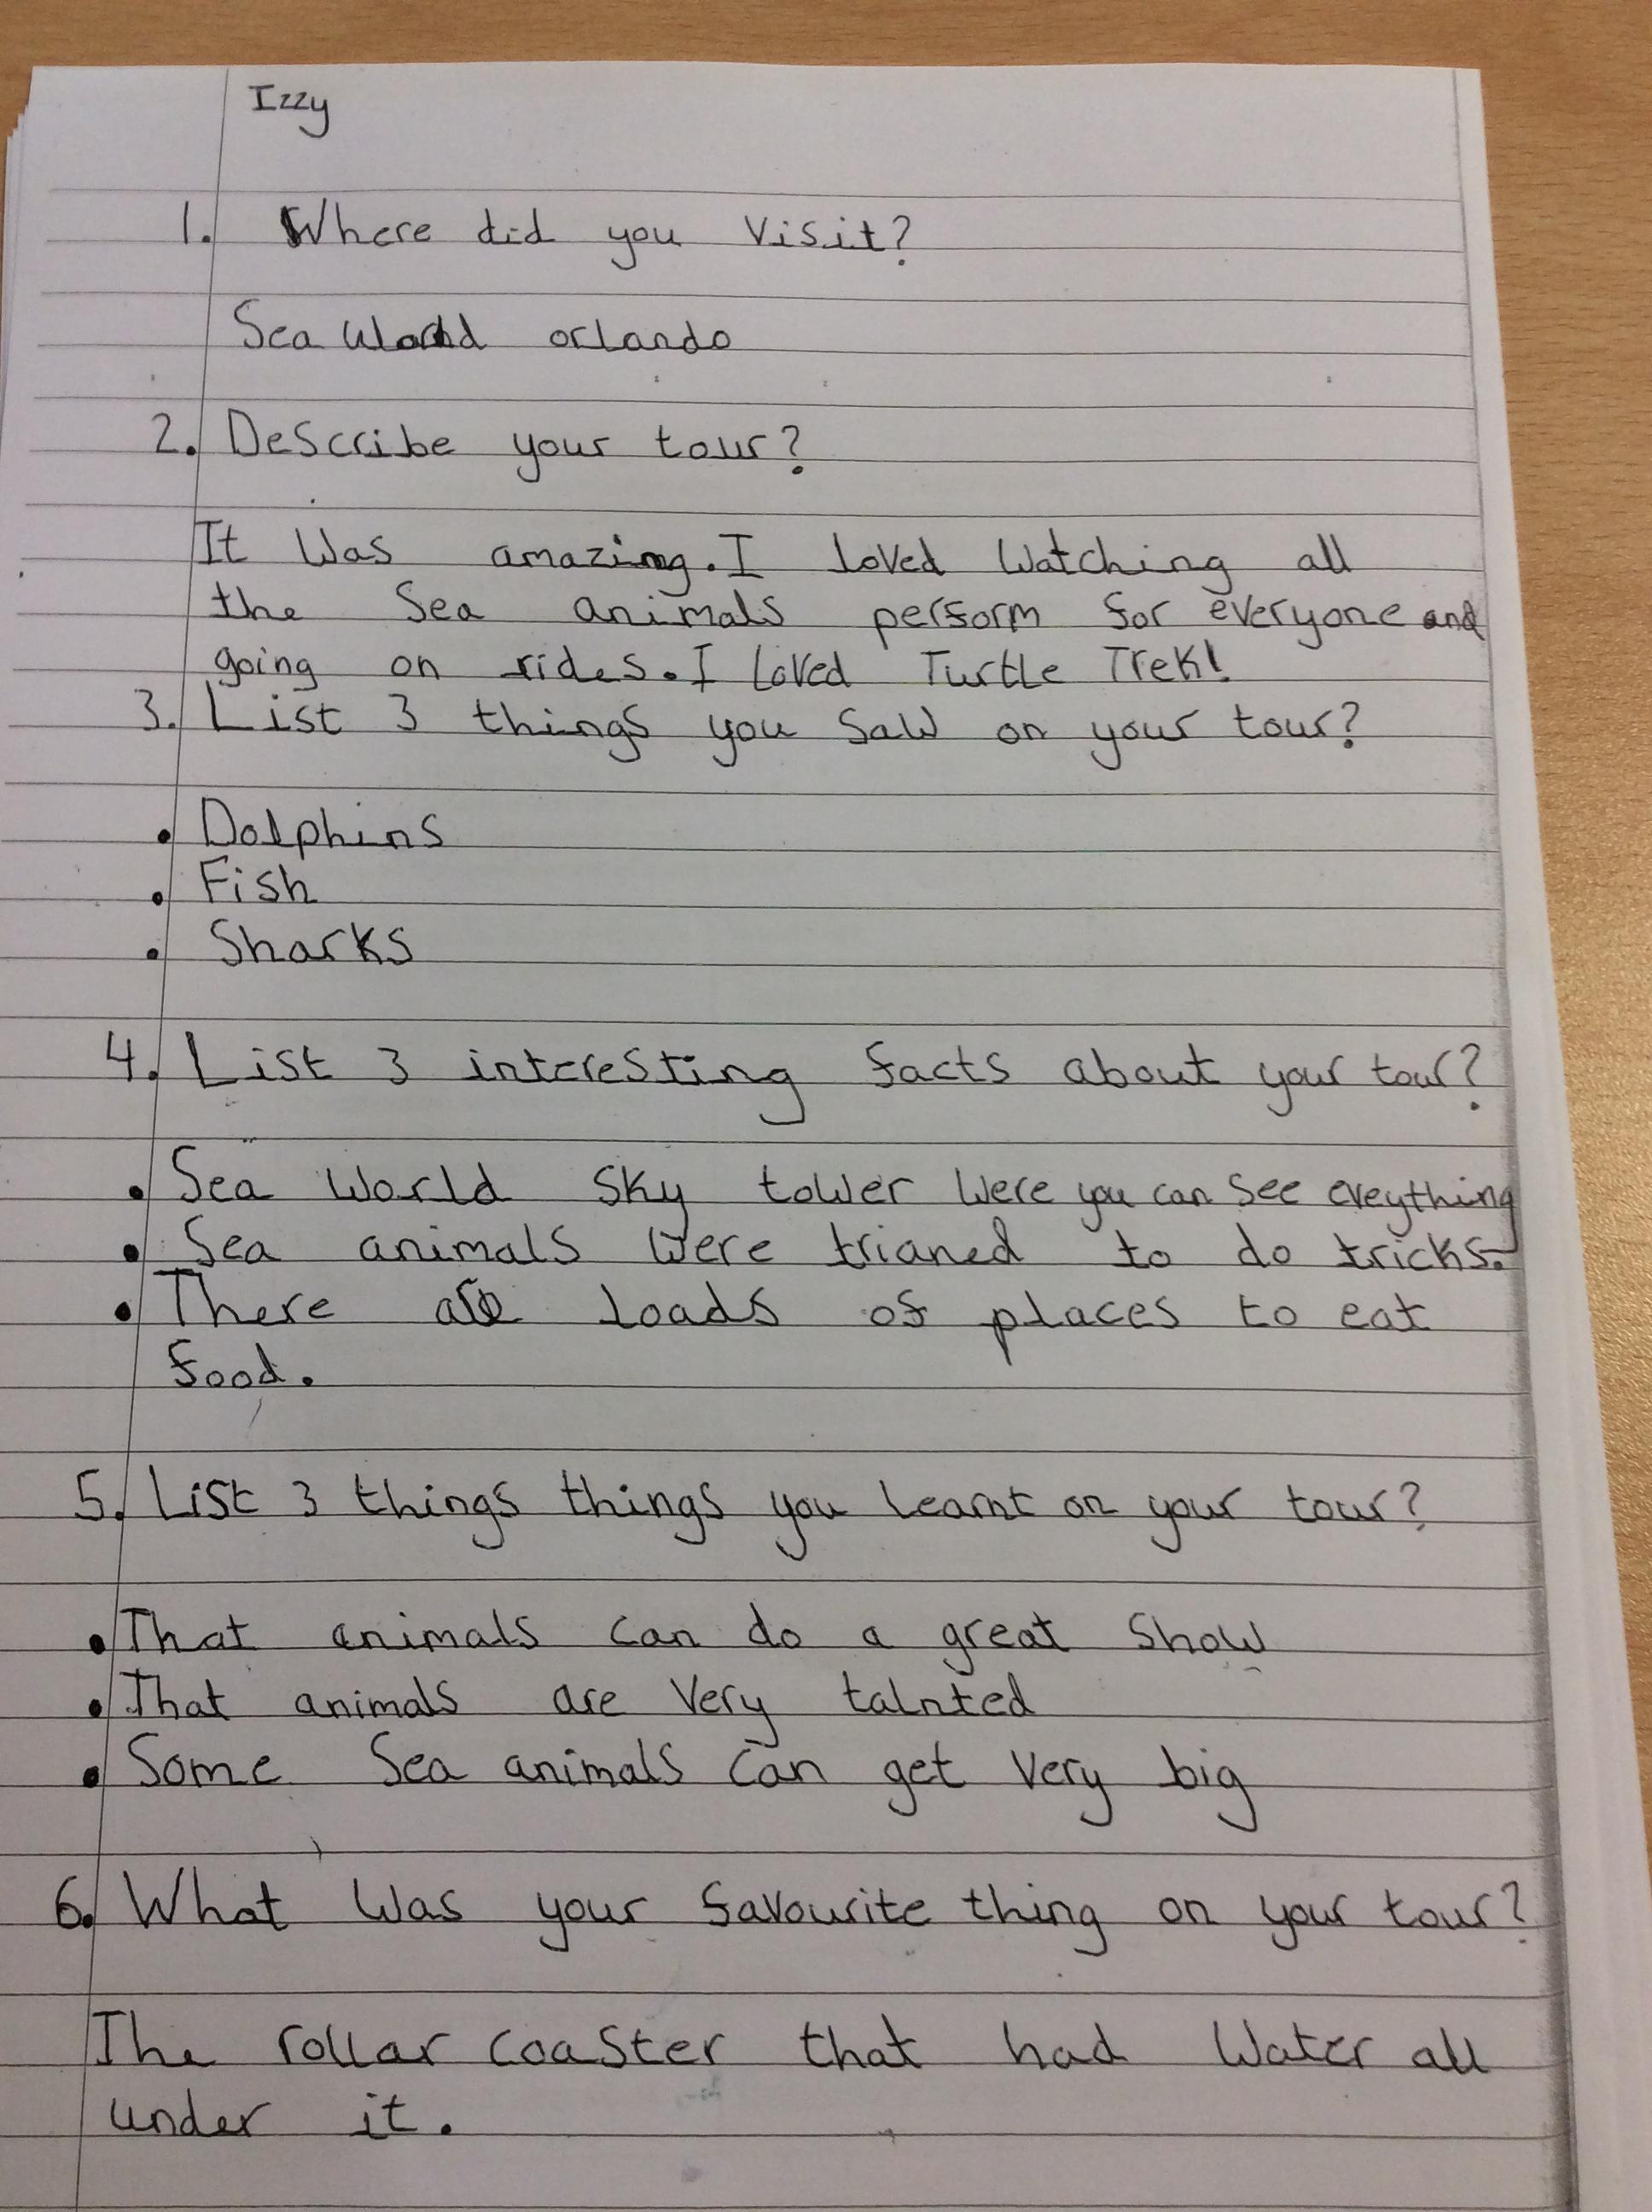 Izzy
1. Where did you visit?
Sea World orlando
2. Describe your tour?
It was amazing. I loved watching all
the sea animals perform for everyone and
going on rides. I loved Turtle Trek!
3. List 3 things you saw on your tour?
• Dolphins
• Fish
• Sharks
4. List 3 interesting facts about your tour?
• Sea World sky tower were you can see eveything
• Sea animals were trianed to do tricks.
• There are loads of places to eat
food.
5. List 3 things things you learnt on your tour?
• That animals can do a great show
• That animals are very talnted
• Some sea animals can get very big
6. What was your favourite thing on your tour?
The rollar coaster that had water all
under it.